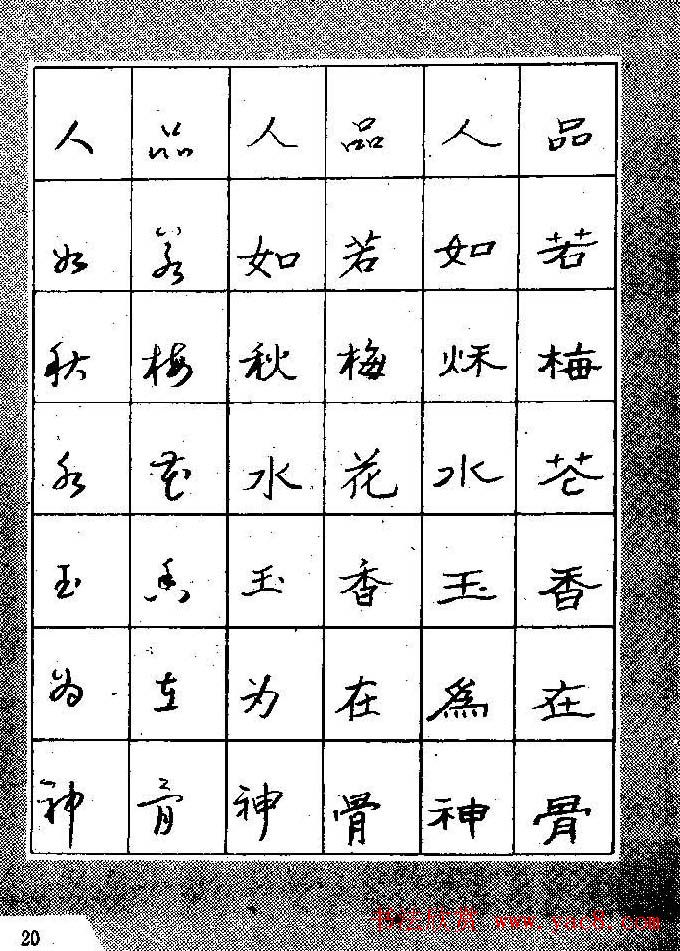 品若梅花香在骨
人如秌水玉為神
品若梅花香在骨
人如秋水玉为神
品若梅花香在骨
人如秋水玉为神
20
书法欣赏 www.yac8.com